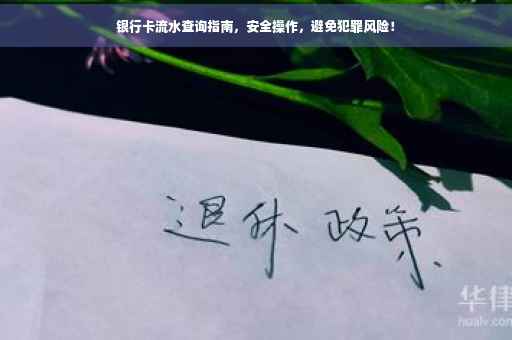 银行卡流水查询指南，安全操作，避免犯罪风险！
退休 政策
华律
hualv.com